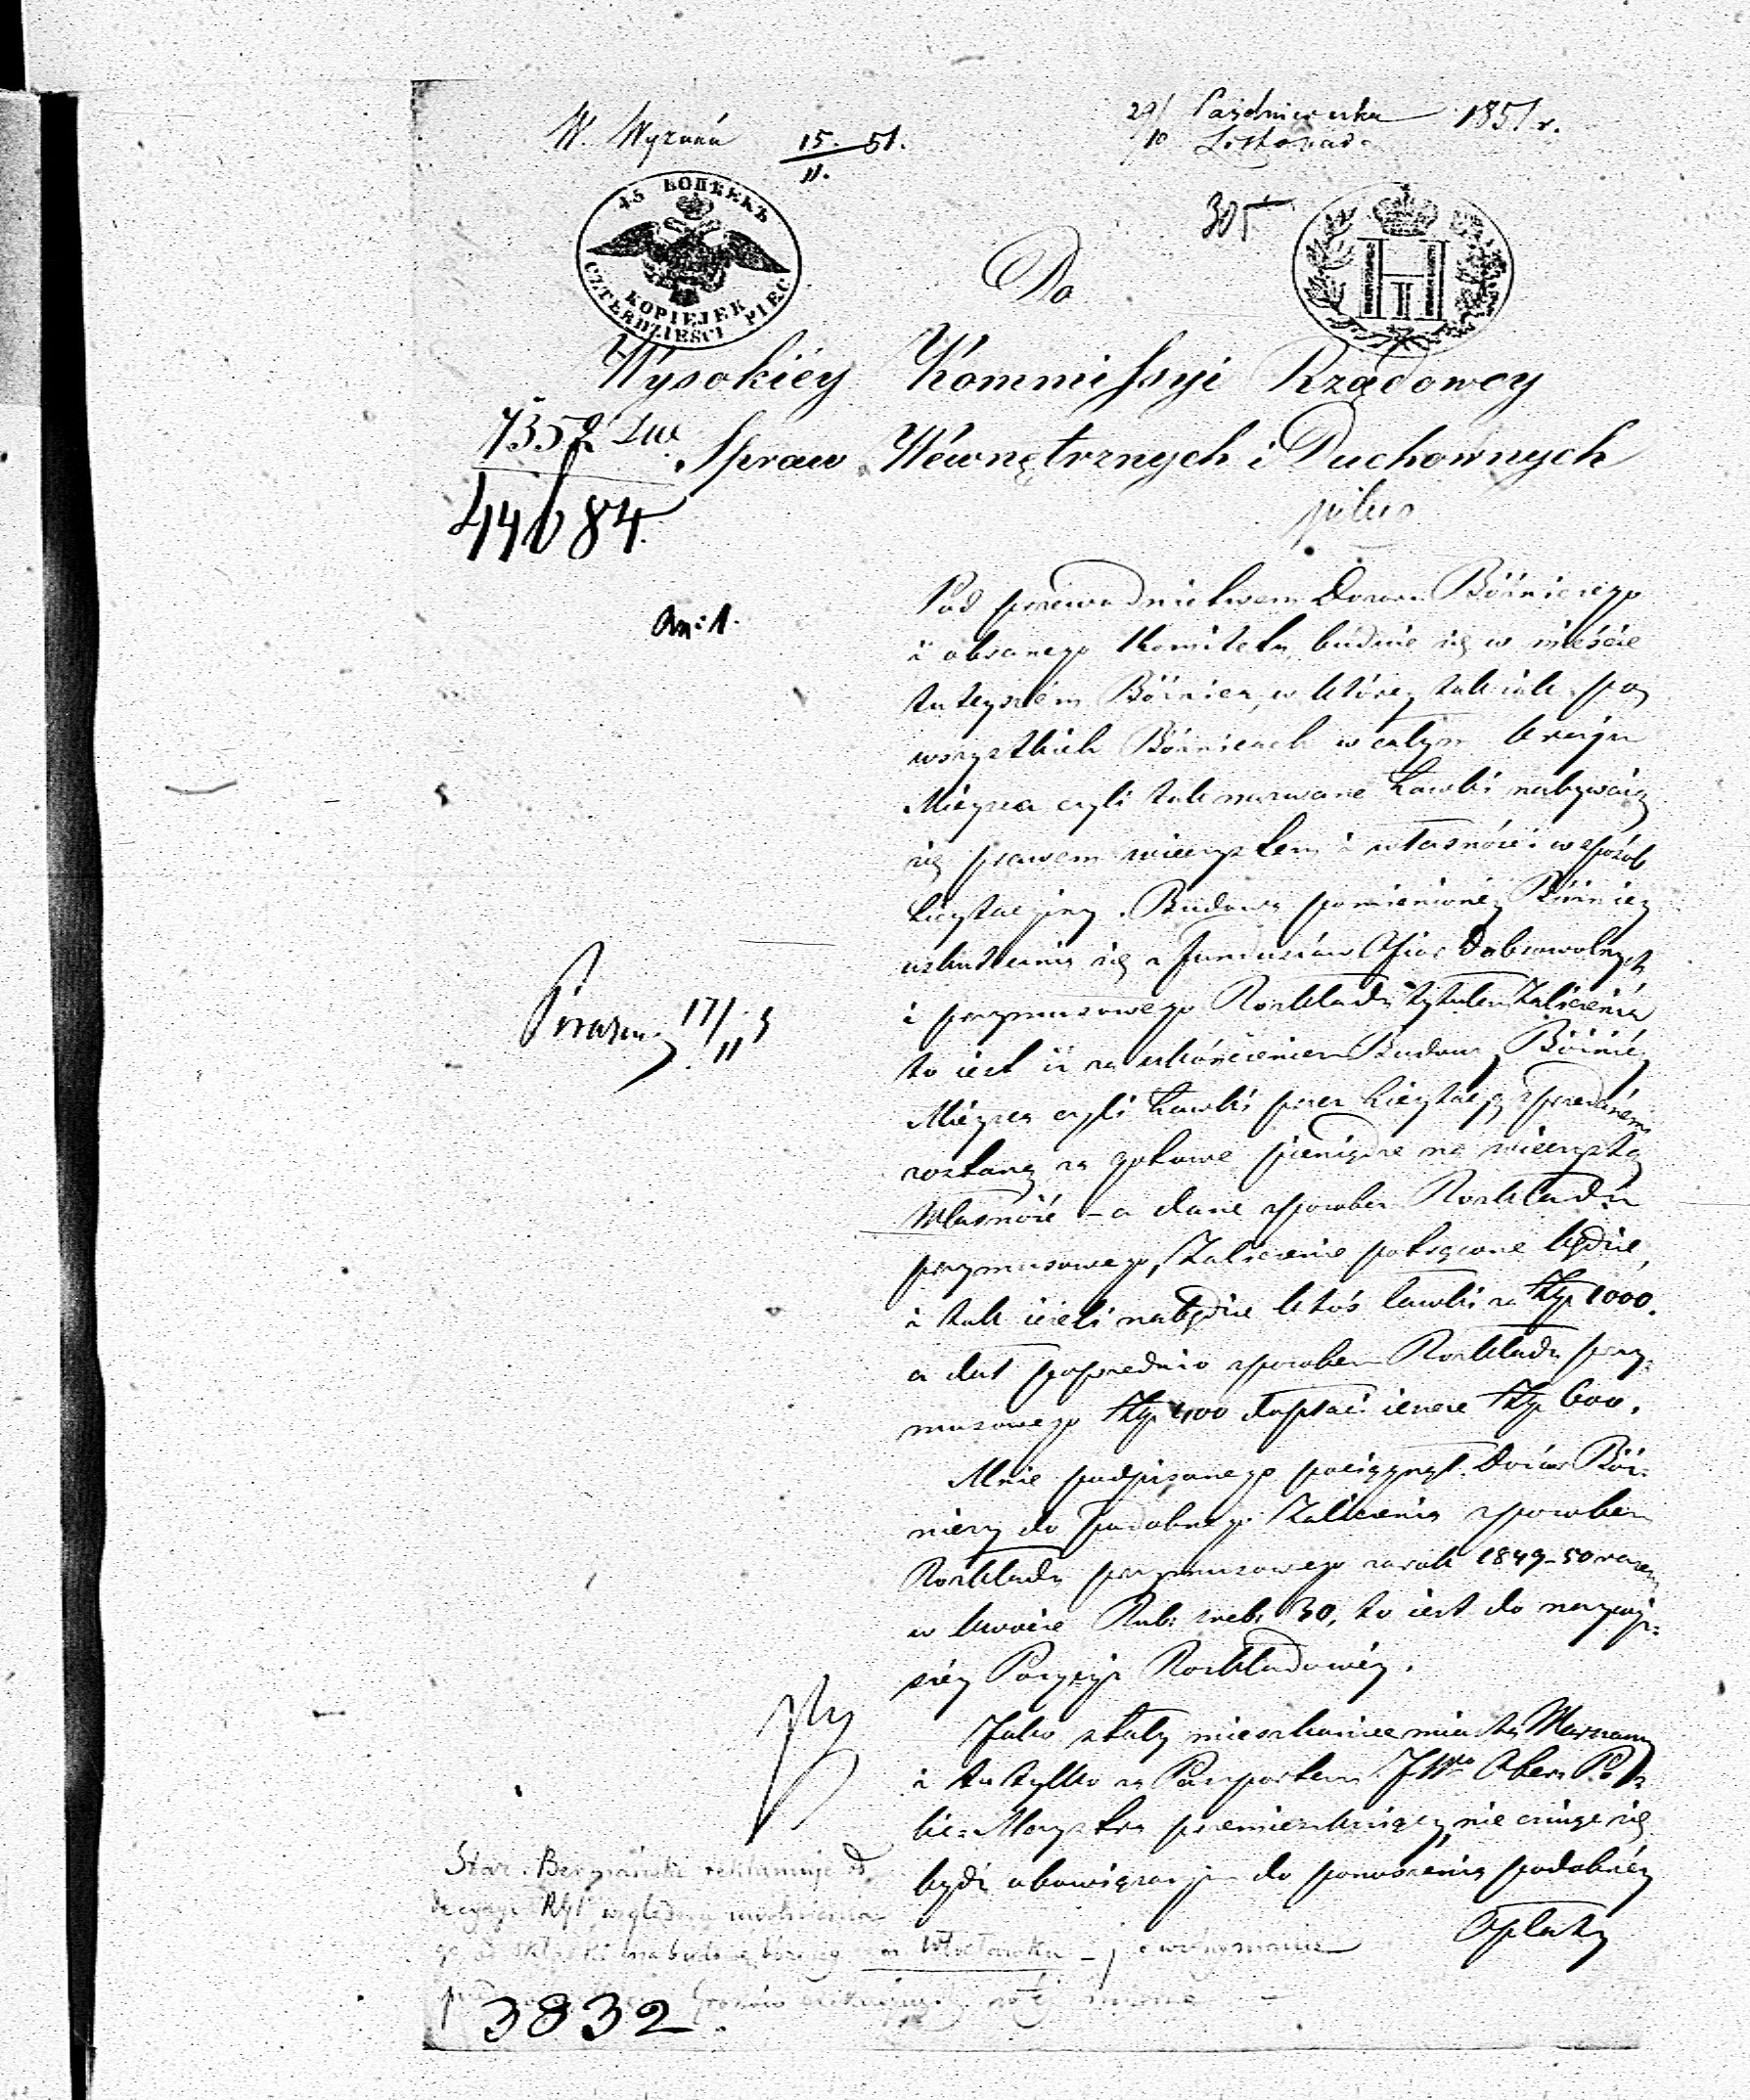 W. Wyznań 15./11. 51.
29/10 Października Listopada 1851 r.
305
45 КОПѢЕКЪ
KOPIEJEK
CZTERDZIEŚCI PIĘĆ
Do
Wysokiéy Kommissyi Rządowey
7352
Spraw Wéwnętrznych i Duchownych
44684.
pilno
An: 1.
Pod przewodnictwem Dozoru Bóżniczego
i obranego Komitetu buduie się w mieście
tuteyszém Bóżnica, w któréy tak iak po
wszystkich Bóżnicach w całym kraiu
Mieysca czyli tak nazwane Ławki nabywaią
się prawem wieczystem i własności w sposób
licytacyiny. Budowa pomienionéy Bóżnicy
uskutecznia się z funduszów Ofiar dobrowolnych
i przymusowego Rozkładu tytułem Zaliczenia
to iest iż za ukończeniem Budowy Bóżnicy
Mieysca czyli Ławki przez licytacyą sprzedanémi
zostaną za gotowe pieniądze na wieczystą
Własność – a dane sposobem Rozkładu
przymusowego, Zaliczenie potrącone będzie,
i tak ieżeli nabędzie ktoś ławki za Złp 1000.
a dał poprzednio sposobem Rozkładu przy=
musowego Złp 400 dopłaci ieszcze Złp 600.
Mnie podpisanego pociągnął Dozór Bóż=
niczy do podobnego Zaliczenia sposobem
Rozkładu przymusowego za rok 1849–50 razem
w kwocie Rub: sreb: 30, to iest do naywyż=
széy Pozycyi Rozkładowéy.
Jako stały mieszkaniec miasta Warszawy
i tu tylko za Paszportem JWo Ober Po=
lic=Maystra przemieszkuiący, nie czuię się
bydź obowiązanym do ponoszenia podobnéy
Opłaty
Star. Bermański reklamuje od
decyzyi RGl względem uwolnienia
go od składki na budowę bóżnicy w Włocławku –
3832.